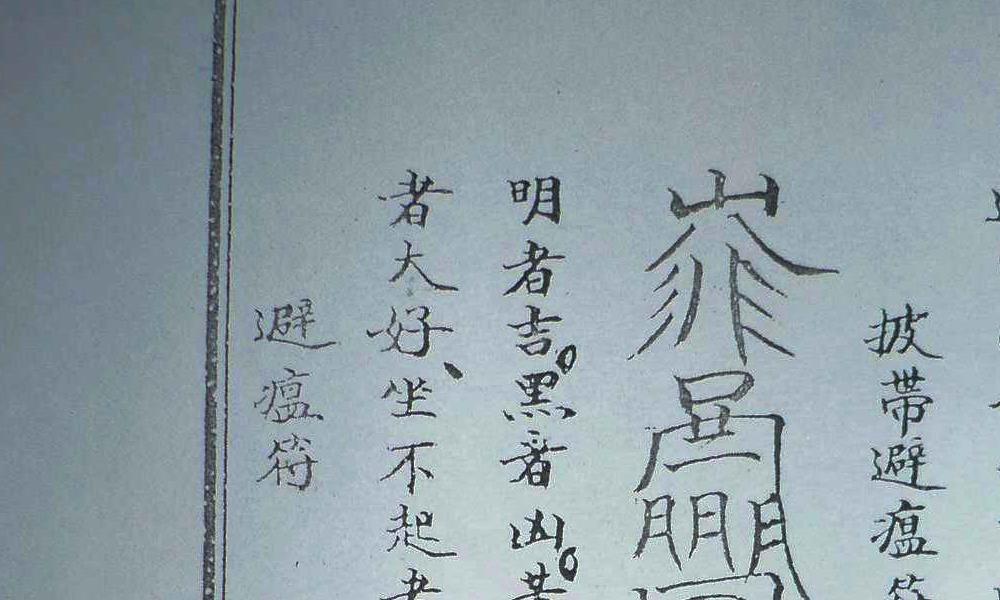 披帶避瘟符
明者吉。黑者凶。若
者大好、坐不起者
避瘟符